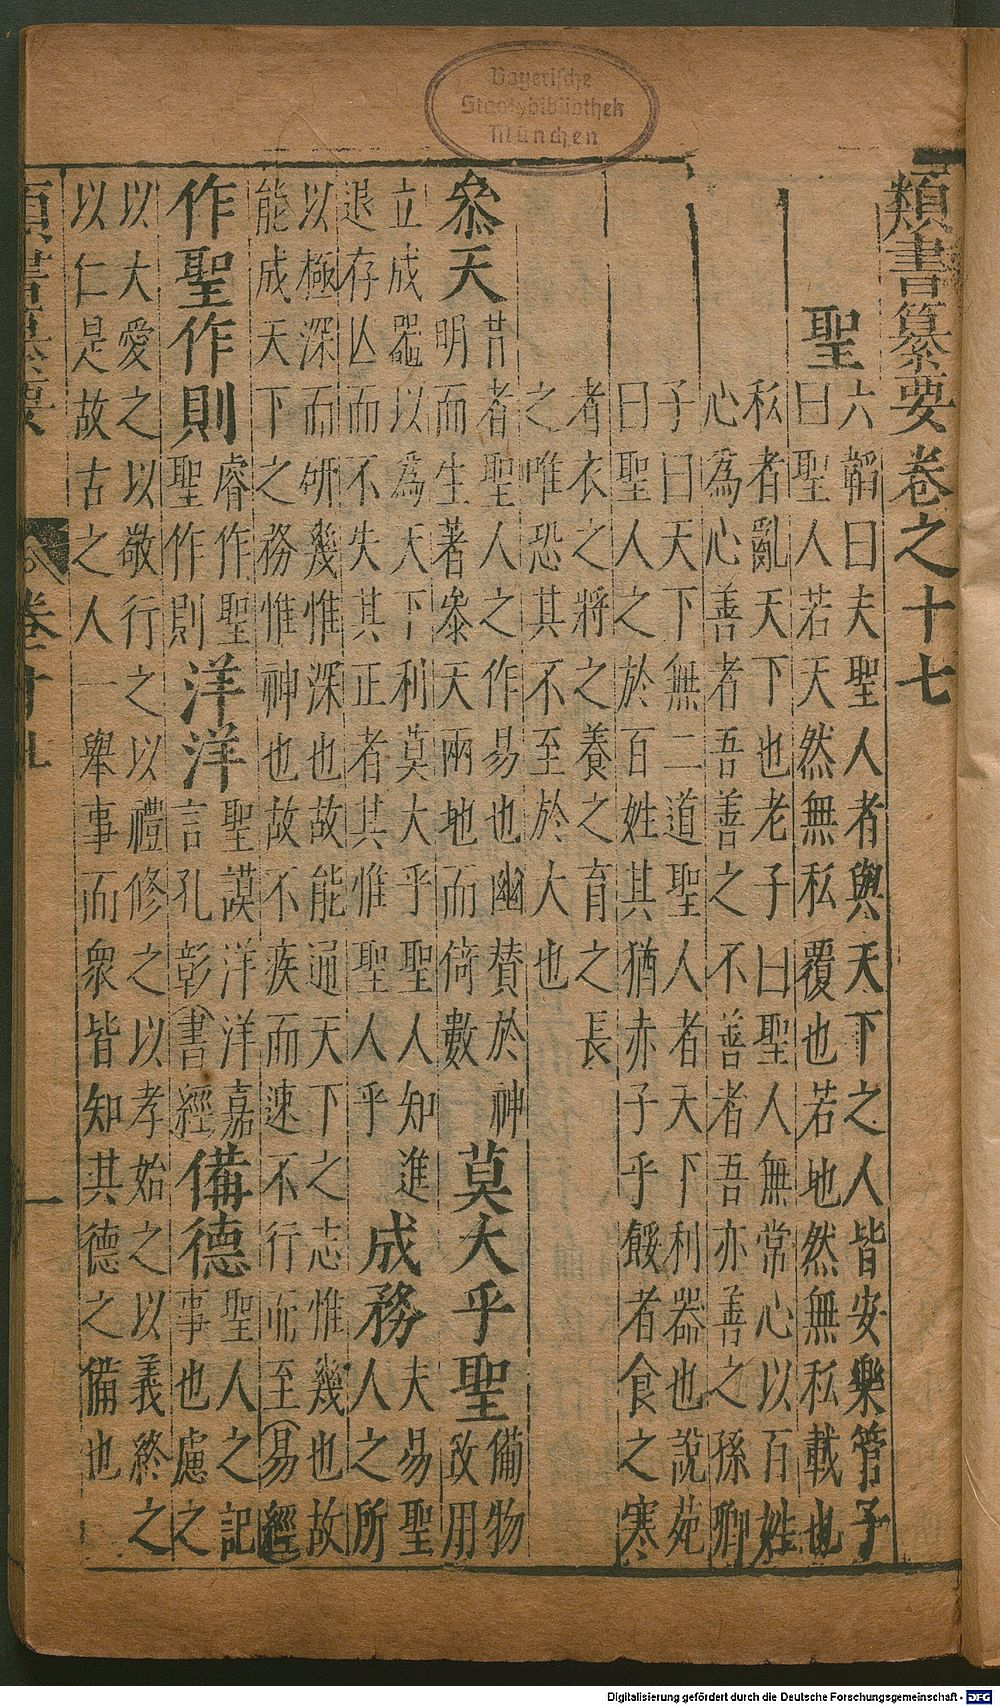 類書纂要卷之十七
聖
六韜曰夫聖人者與天下之人皆安樂管子
曰聖人若天然無私覆也若地然無私載也
私者亂天下也老子曰聖人無常心以百姓
心為心善者吾善之不善者吾亦善之孫卿
子曰天下無二道聖人者天下利器也說苑
曰聖人之於百姓其猶赤子乎餒者食之寒
者衣之將之養之育之長
之唯恐其不至於大也
參天
昔者聖人之作易也幽贊於神
明而生著參天兩地而倚數
莫大乎聖
備物
致用
立成噐以為天下利莫大乎聖人知進
退存亾而不失其正者其惟聖人乎
成務
夫易聖
人之所
以極深而研幾惟深也故能通天下之志惟幾也故
能成天下之務惟神也故不疾而速不行而至(易經)
作聖作則
睿作聖
聖作則
洋洋
聖謨洋洋嘉
言孔彰(書經)
備德
聖人之記
事也慮之
以大愛之以敬行之以禮修之以孝始之以義終之
以仁是故古之人一舉事而衆皆知其德之備也
類書纂要
一
Bayerische
Staatsbibliothek
München
Digitalisierung gefördert durch die Deutsche Forschungsgemeinschaft - DFG